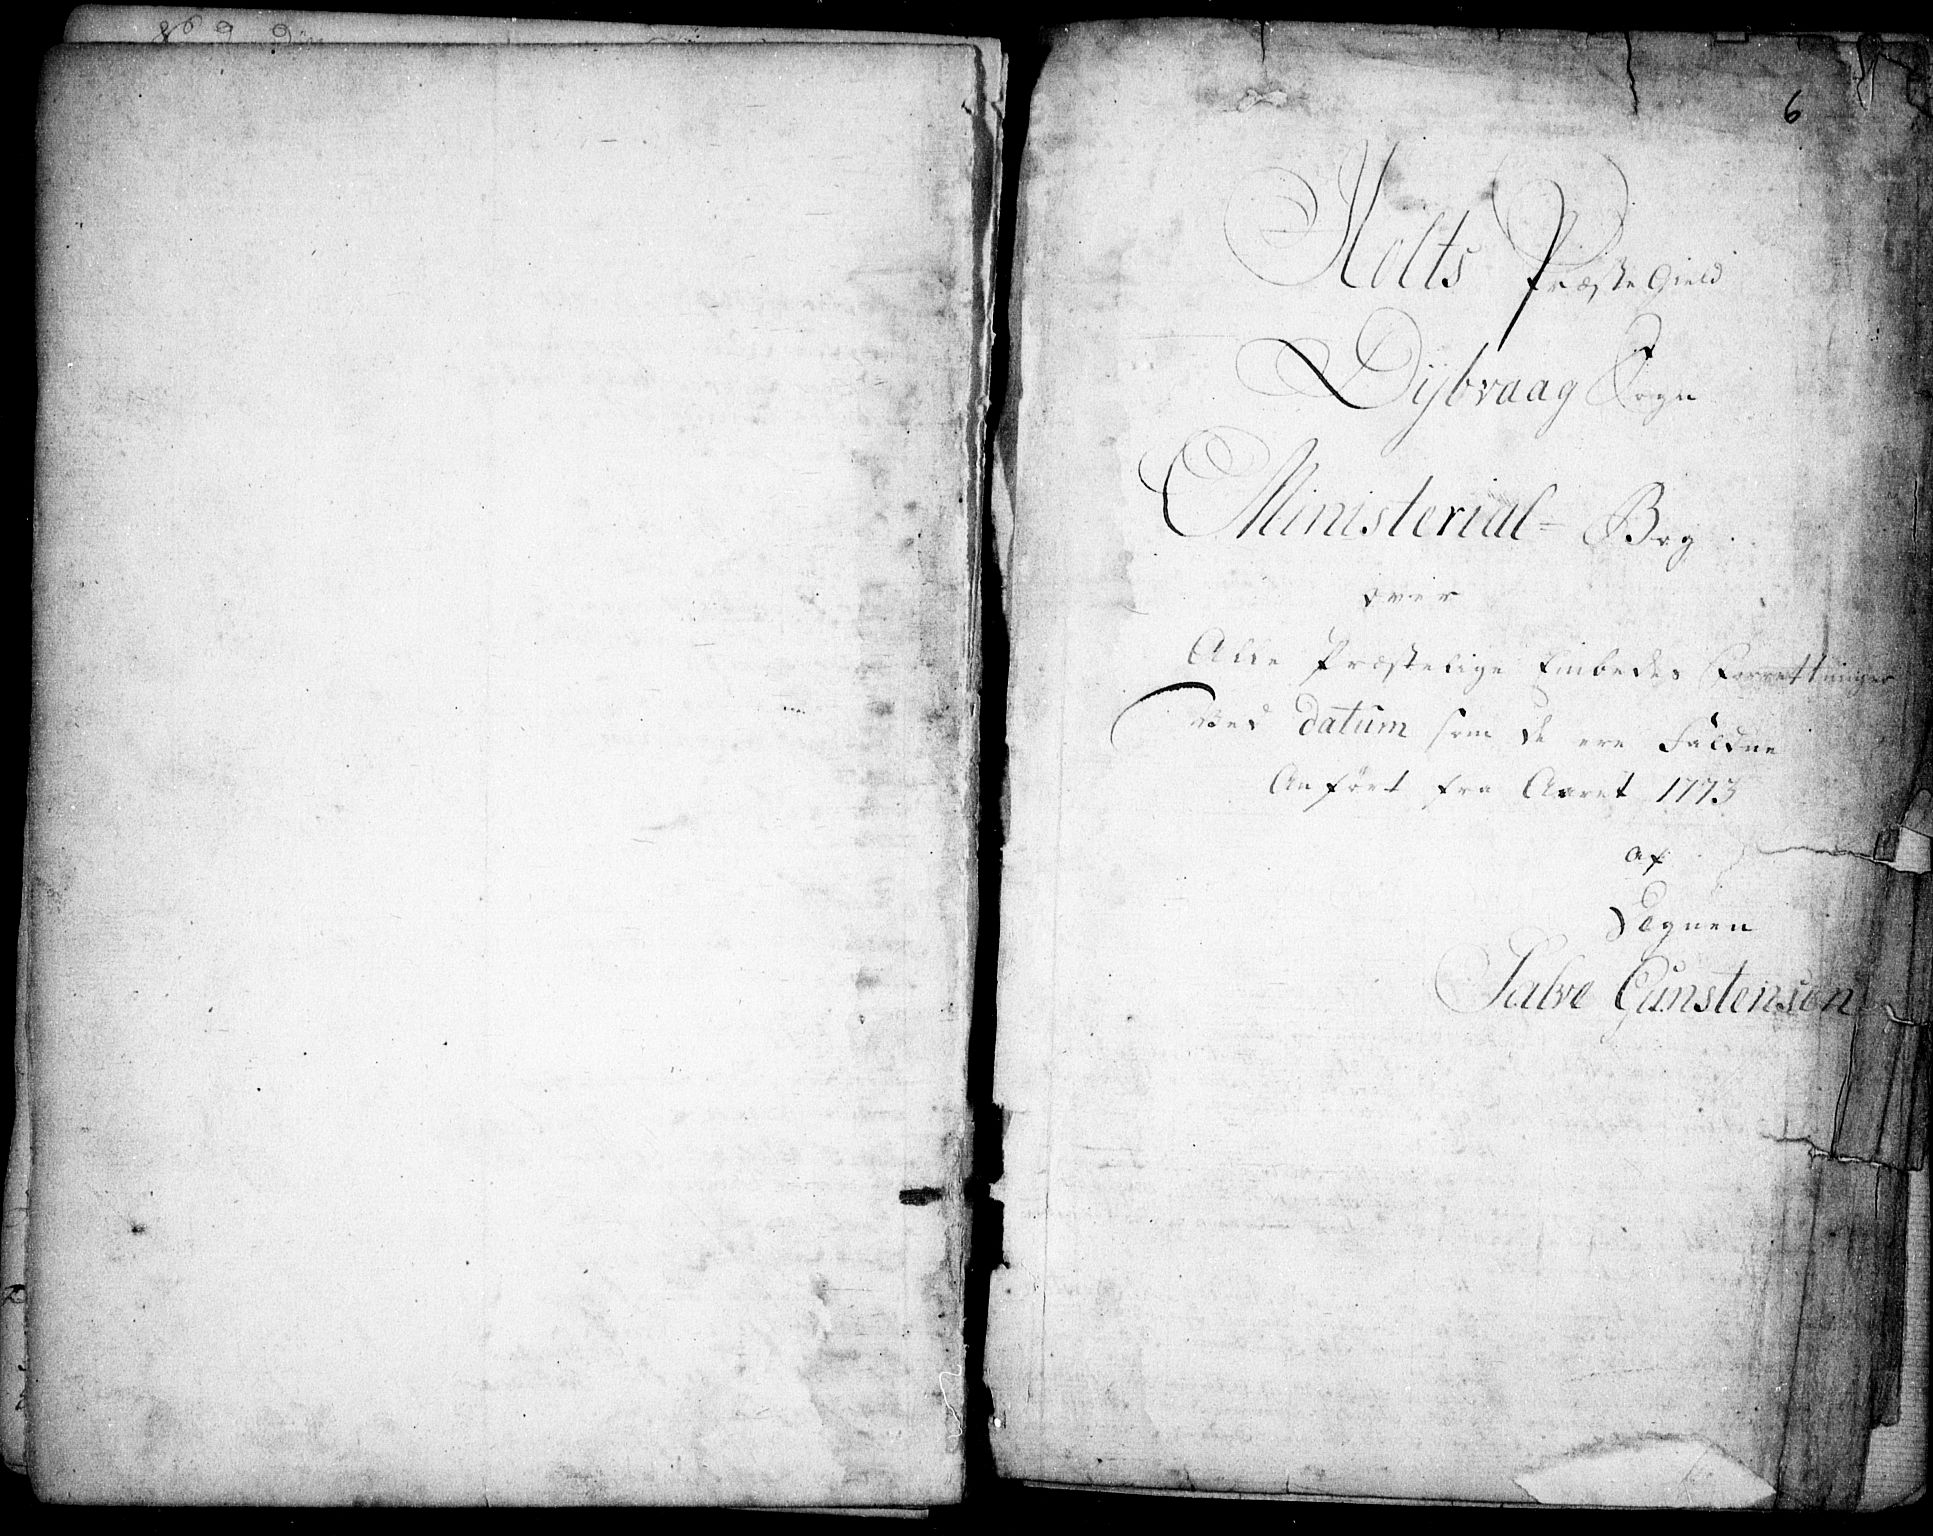 6
Holts Præste Gield
Dijbvaag Sogn
Ministerial= Bog
over
Alle Præstelige Embedes Forrettninger
Ved datum som de ere Faldne
Anført fra Aaret 1773
af
Degnen
Salve Gunstensøn